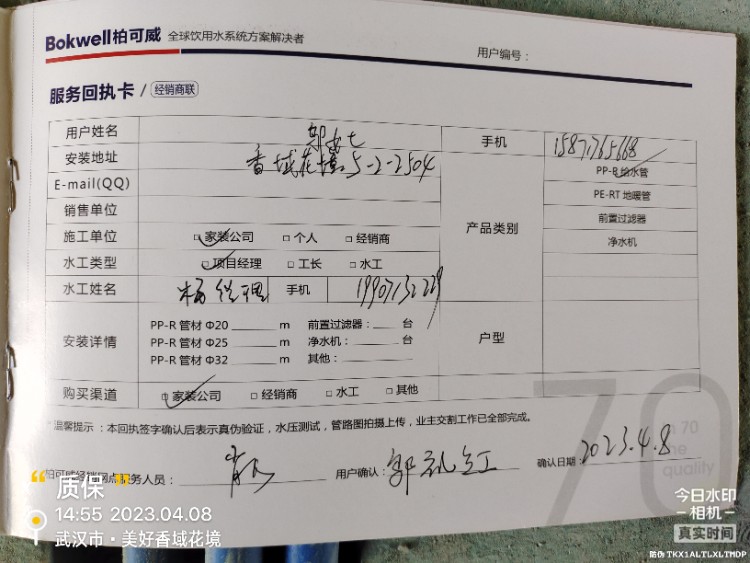 Bokwell柏可威 全球饮用水系统方案解决者
用户编号：
服务回执卡 / 经销商联
用户姓名 手机 15871765668
安装地址 香域花境.5-2-2504 产品类别 PP-R 给水管
E-mail(QQ) PE-RT 地暖管
销售单位 前置过滤器
施工单位 □ 家装公司 □ 个人 □ 经销商 净水机
水工类型 □ 项目经理 □ 工长 □ 水工
水工姓名 杨经理 手机 19907132229
安装详情 户型
PP-R 管材 Φ20 m 前置过滤器： 台
PP-R 管材 Φ25 m 净水机： 台
PP-R 管材 Φ32 m 其他：
购买渠道 □ 家装公司 □ 经销商 □ 水工 □ 其他
* 温馨提示：本回执签字确认后表示真伪验证，水压测试，管路图拍摄上传，业主交割工作已全部完成。
柏可威经销网点服务人员： 用户确认： 确认日期： 2023.4.8
70
quality
质保
14:55 2023.04.08
武汉市·美好香域花境
今日水印
相机
真实时间
防伪 TKX1ALTLXLTMDP